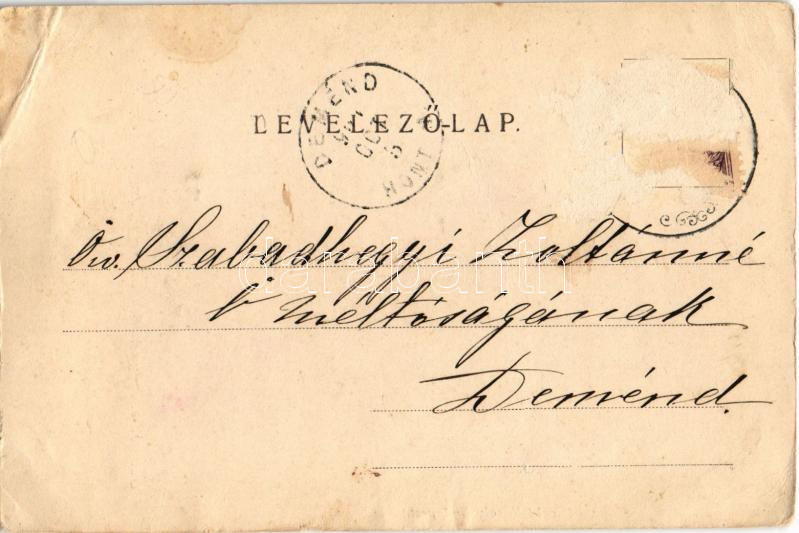 LEVELEZŐ-LAP.
DEMÉND
HONT
Özv. Szabadhegyi Zoltánné
ő méltóságának
Deménd.
darabanth